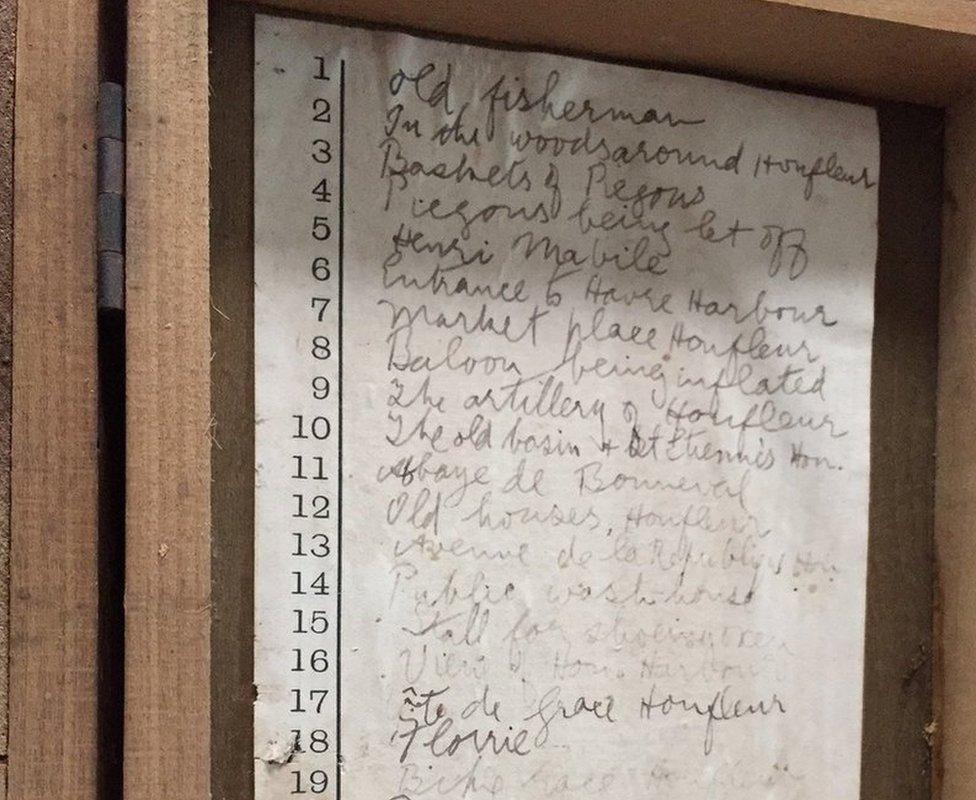 1 Old fisherman
2 In the woods around Honfleur
3 Baskets of Piegons
4 Piegons being let off
5 Henri Mabile
6 Entrance to Havre Harbour
7 Market place Honfleur
8 Baloon being inflated
9 The artillery of Honfleur
10 The old basin + St Etienne's Hon.
11 Abbaye de Bonneval
12 Old houses, Honfleur
13 Avenue de la Republique Hon
14 Public wash-house
15 Stall for shoeing oxen
16 View of Hon. Harbour
17 Côte de Grace Honfleur
18 Florrie
19 race Honfleur